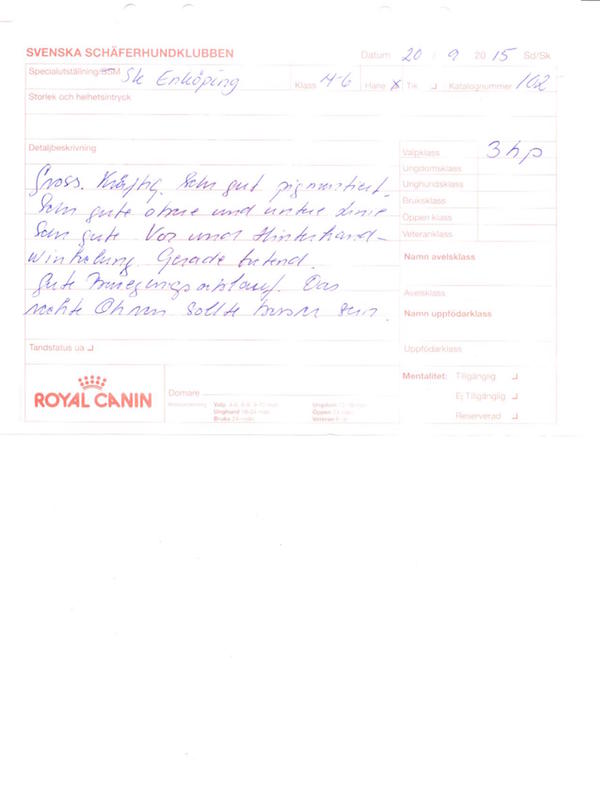 SVENSKA SCHÄFERHUNDKLUBBEN
Datum 20 / 9 2015 Sd/Sk
Specialutställning/SSM Sk Enköping
Klass 4-6 Hane x Tik Katalognummer 102
Storlek och helhetsintryck
Detaljbeskrivning
Gross. Kräftig. Sehr gut pigmentiert.
Sehr gute obere und untere Linie
Sehr gute Vor und Hinterhand-
winkelung. Gerade tretend.
Gute Bewegungsablauf. Das
rechte Ohren sollte besser sein.
Valpklass 3 hp
Ungdomsklass
Unghundsklass
Bruksklass
Öppen klass
Veteranklass
Namn avelsklass
Avelsklass
Namn uppfödarklass
Uppfödarklass
Tandstatus ua
Mentalitet: Tillgänglig
Ej Tillgänglig
Reserverad
ROYAL CANIN
Domare